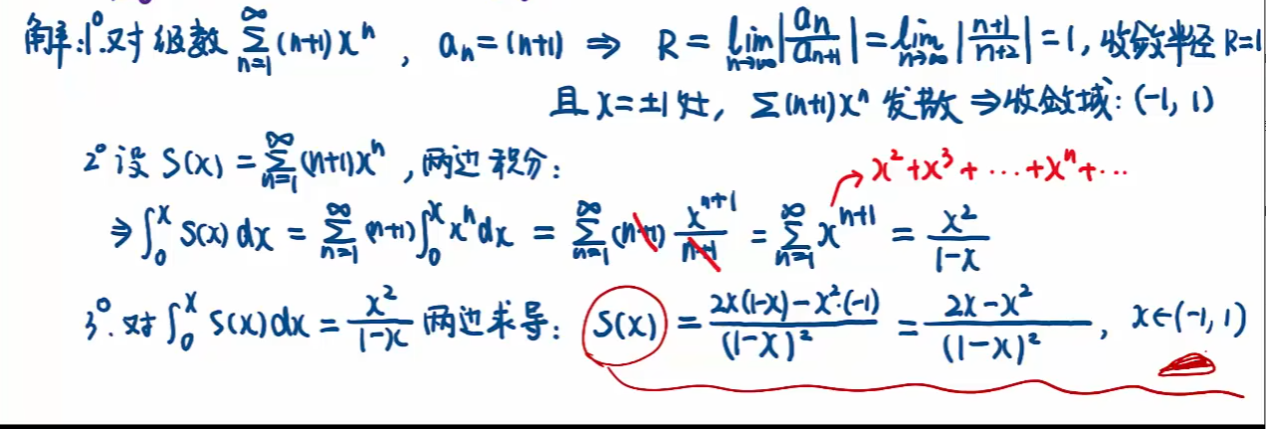 解:1°.对级数 ∑_{n=1}^{∞} (n+1)x^n , a_n=(n+1) ⇒ R = lim_{n→∞} |a_n/a_{n+1}| = lim_{n→∞} |(n+1)/(n+2)| = 1, 收敛半径 R=1
且 x=±1处, ∑(n+1)x^n 发散 ⇒ 收敛域: (-1, 1)
2° 设 S(x) = ∑_{n=1}^{∞} (n+1)x^n , 两边积分:
x²+x³+ ··· +x^n+ ···
⇒ ∫_0^x S(x) dx = ∑_{n=1}^{∞} (n+1) ∫_0^x x^n dx = ∑_{n=1}^{∞} (n+1) x^{n+1}/(n+1) = ∑_{n=1}^{∞} x^{n+1} = x²/(1-x)
3°. 对 ∫_0^x S(x)dx = x²/(1-x) 两边求导: S(x) = (2x(1-x) - x²·(-1))/(1-x)² = (2x-x²)/(1-x)² , x∈(-1, 1)